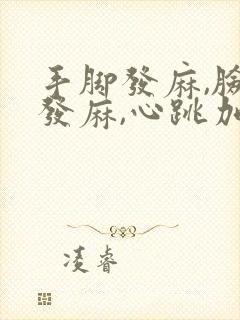 手脚發麻,胸
發麻,心跳加
凌睿